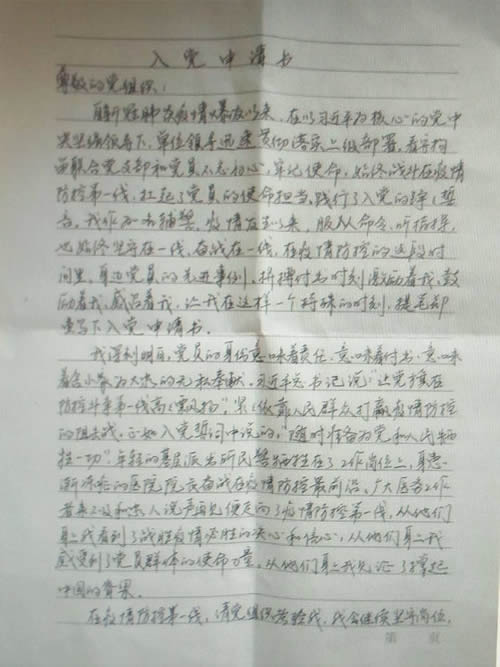 入党申请书
尊敬的党组织:
自新冠肺炎疫情爆发以来,在以习近平为核心的党中
央坚强领导下,单位领导迅速贯彻落实上级部署,看守拘
留联合党支部和党员不忘初心,牢记使命,始终战斗在疫情
防控第一线,扛起了党员的使命担当,践行了入党的铮铮誓
言。我作为一名辅警,疫情发生以来,服从命令、听指挥,
也始终坚守在一线,奋战在一线,在疫情防控的这段时
间里,身边党员的先进事例、拼搏付出时刻激励着我,鼓
励着我,感召着我,让我在这样一个特殊的时刻,提笔郑
重写下入党申请书。
我深刻明白,党员的身份意味着责任,意味着付出,意味
着舍小家为大家的无私奉献。习近平总书记说:“让党旗在
防控斗争第一线高高飘扬”,紧紧依靠人民群众打赢疫情防控
的阻击战,正如入党誓词中说的,“随时准备为党和人民牺
牲一切”,年轻的基层派出所民警牺牲在了工作岗位上,身患
渐冻症的医院院长奋战在疫情防控最前沿,广大医务工作
者来不及和家人说声再见便走向了疫情防控第一线,从他们
身上我看到了战胜疫情必胜的决心和信心,从他们身上我
感受到了党员群体的使命力量,从他们身上我见证了撑起
中国的脊梁。
在疫情防控第一线,请党组织考验我,我会继续坚守岗位,
第 页